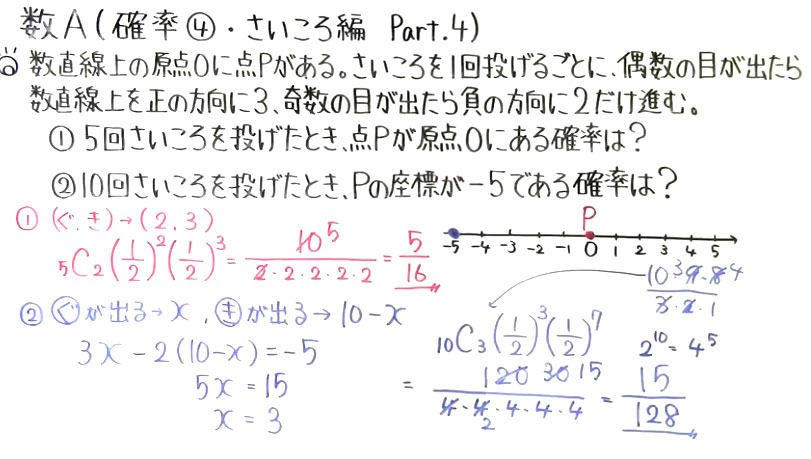 数A(確率④・さいころ編 Part.4)
問 数直線上の原点Oに点Pがある。さいころを1回投げるごとに、偶数の目が出たら
数直線上を正の方向に3、奇数の目が出たら負の方向に2だけ進む。
① 5回さいころを投げたとき、点Pが原点Oにある確率は?
②10回さいころを投げたとき、Pの座標が-5である確率は?
① (ぐ,き)→(2,3)
₅C₂(1/2)²(1/2)³ = 10 5/2・2・2・2・2 = 5/16
P
-5 -4 -3 -2 -1 0 1 2 3 4 5
10・3 9・8 4/3・2・1
② ぐが出る→x, きが出る→10-x
3x-2(10-x)=-5
5x=15
x=3
₁₀C₃(1/2)³(1/2)⁷
2¹⁰=4⁵
= 120 30 15/4・4 2・4・4・4 = 15/128